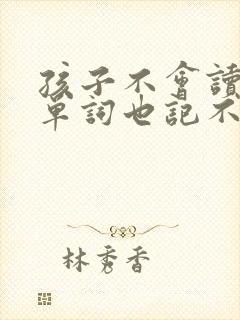 孩子不會讀
單詞也記不
林秀香